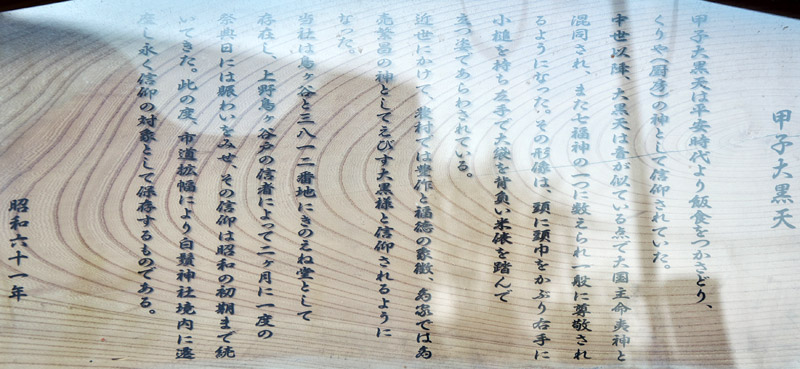 甲子大黒天
甲子大黒天は平安時代より飯食をつかさどり、
くりや（厨房）の神として信仰されていた。
中世以降、大黒天は音が似ている点で大国主命夷神と
混同され、また七福神の一つに数えられ一般に尊敬され
るようになった。その形像は、頭に頭巾をかぶり右手に
小槌を持ち左手で大袋を背負い米俵を踏んで
立つ姿であらわされている。
近世にかけて、農村では豊作と福徳の象徴、商家では商
売繁昌の神としてえびす大黒様と信仰されるように
なった。
当社は鳥ヶ谷と三八一二番地にきのえね堂として
存在し、上野鳥ヶ谷戸の信者によって二ヶ月に一度の
祭典日には賑わいをみせ、その信仰は昭和の初期まで続
いてきた。此の度、市道拡幅により白鬚神社境内に遷
座し永く信仰の対象として保存するものである。
昭和六十一年